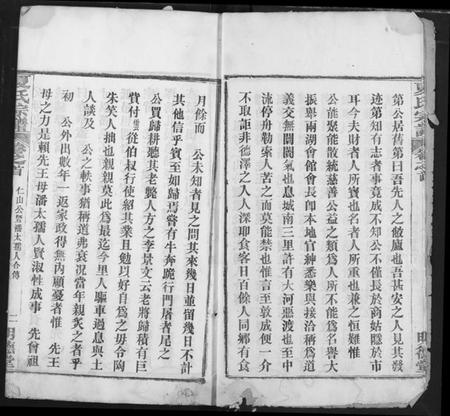 第公居舊第曰吾先人之餘廬也吾甚安之人見其發
迹第知有志者事竟成不知公不僅長於商姑隱於市
耳今夫財者人所寶也名者人所重也兼之恒難惟
公能聚能散統慈善公益之類爲人所不能爲名譽大
振舉兩湖會館會長即本地官紳悉樂與接洽稱爲道
義交無閡閡氣也息城南三里許有大河惡渡也至中
流停舟勒索人苦之而莫能禁也惟言至敦成便一介
不取詎非德澤之入人深耶食客日百餘人同鄉有食
明德堂
月餘而 公未知者見之問其來幾日並留幾日不計
其他信乎賓至如歸焉嘗有牛奔跪行門屠者尾之
公買歸耕聽其老斃人方之李景文云老將歸積有巨
貲付 從伯叔行使紹其業且勉以好自爲之毋合陶
朱笑人拙也親親莫此爲最迄今里人驅車過息與土
人談及 公之軼事猶稱道弗衰况當年親炙之者乎
初 公外出數年一返家政得無內顧憂者惟 先王
母之力是賴先王母潘太孺人賢淑性成事 先曾祖
夏氏宗譜 卷之首
仁山公暨潘太孺人合傳
二 明德堂